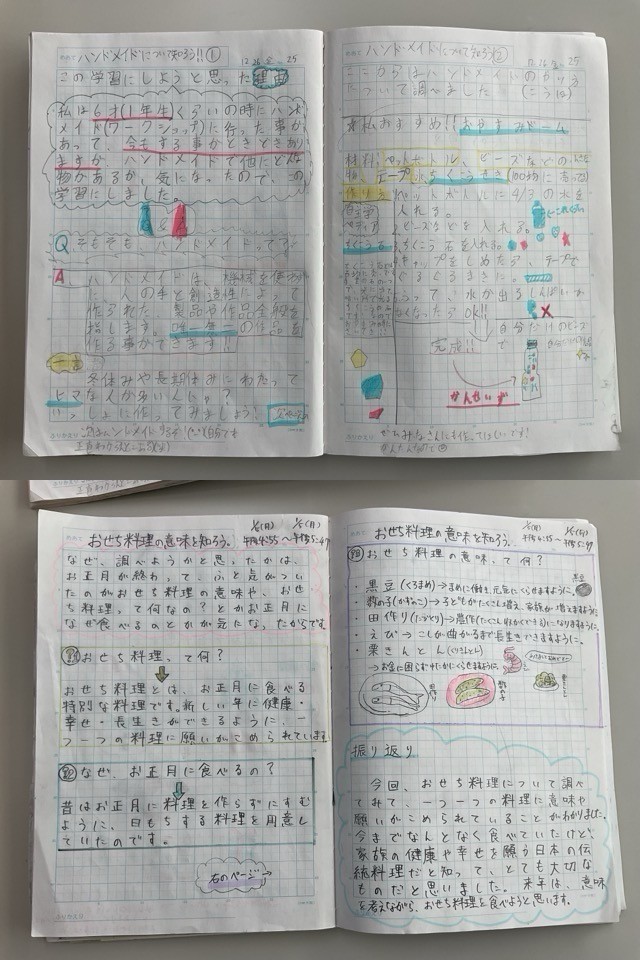 ハンドメイドについて知ろう!!①
12 26 金 25
この学習にしようと思った理由
私は6才(1年生)くらいの時にハンド
メイド(ワークショップ)に行った事が
あって、今もする事がときどきあり
ますが、ハンドメイドで他にどんな
物があるか、気になったので、この
学習にしました。
Q そもそも ハンドメイドって?
A、ハンドメイドは、
に人の手と創造性によって
作られた、製品や作品全般を
指します。唯一無二の作品を
作る事ができます!!
冬休みや長期休みにわたって
ヒマな人が多いんじゃ?
いっしょに作ってみましょう!
ハンドメイドについて知ろう②
12 26 金 25
ここからはハンドメイドのやり方
について調べました
★私おすすめ!!おやすみドーム
材料、ペットボトル、ビーズなどの
テープ ちくこうせき(100均に売ってる)
作り方 ペットボトルに4/3の水を
入れる。
ビーズなどを入れる。
ちくこう石を入れる。
テープで
ぐるぐるまきに。
って、水が出るしんぱいが
なくなったらOK!!
完成!!
自分だけのビーズ
かんたんず
おせち料理の意味を知ろう。
1/5(月) 1/5(月)
午後4:55〜午後5:47
なぜ、調べようかと思ったかは、
お正月が終わって、ふと気がつい
たのがおせち料理の意味や、おせ
ち料理って何なの?とかお正月に
なぜ食べるのとかが気になったからです。
おせち料理って何?
おせち料理とは、お正月に食べる
特別な料理です。新しい年に健康・
幸せ・長生きができるように、一
つ一つの料理に願いがこめられています。
なぜ、お正月に食べるの?
昔はお正月に料理を作らずにすむ
ように、日もちする料理を用意し
ていたのです。
右のページ→
おせち料理の意味を知ろう。
1/5(月) 1/5(月)
午後4:55〜午後5:47
おせち料理の意味って何?
・黒豆(くろまめ)→まめに働き、元気にくらせますように。
黒豆
・数の子(かずのこ)→子どもがたくさん増え、家族が増えますように
・田作り(たづくり)→豊作(たくさん収かくできる)になりますように。
・えび→こしが曲がるまで長生きできますように。
・栗きんとん(くりきんとん)
→お金に困らずゆたかにくらせますように。
田作り
数の子
振り返り
今回、おせち料理について調べ
てみて、一つ一つの料理に意味や
願いがこめられていることがわかりました。
今までなんとなく食べていたけど、
家族の健康や幸せを願う日本の伝
統料理だと知って、とても大切な
ものだと思いました。来年は、意味
を考えながら、おせち料理を食べようと思います。